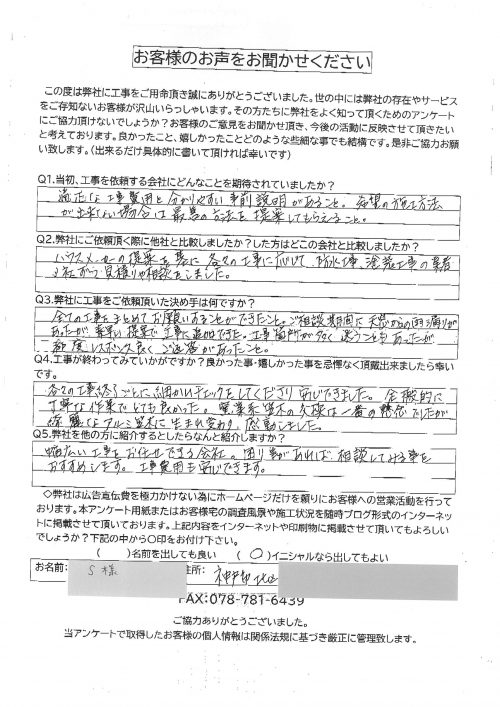 お客様のお声をお聞かせください
この度は弊社に工事をご用命頂き誠にありがとうございました。世の中には弊社の存在やサービス
をご存知ないお客様が沢山いらっしゃいます。その方たちに弊社をよく知って頂くためのアンケート
にご協力頂けないでしょうか？お客様のご意見をお聞かせ頂き、今後の活動に反映させて頂きたい
と考えております。良かったこと、嬉しかったことどのような些細な事でも結構です。是非ご協力お願
い致します。（出来るだけ具体的に書いて頂ければ幸いです）
Q1.当初、工事を依頼する会社にどんなことを期待されていましたか？
適正な工事費用と分かりやすい事前説明があること。希望の施工方法
が出来ない場合は最善の方法を提案してもらえること。
Q2.弊社にご依頼頂く際に他社と比較しましたか？した方はどこの会社と比較しましたか？
ハウスメーカーの提案を基に各々の工事に応じて、防水工事、塗装工事の業者
2社ずつ見積りや相談をしました。
Q3.弊社に工事をご依頼頂いた決め手は何ですか？
全ての工事をまとめてお願いすることができたこと。ご相談期間に天窓からの雨漏りが
あったが、素早い提案で工事に追加できた。工事箇所が多く迷うこともあったが
都度レスポンス良くご返答があったこと。
Q4.工事が終わってみていかがですか？良かった事・嬉しかった事を忌憚なく頂戴出来ましたら幸い
です。
各々の工事終るごとに細かいチェックをしてくださり安心できました。全般的に
丁寧な作業でとても良かった。
綺麗なアルミ笠木に生まれ変わり、感動しました。
Q5.弊社を他の方に紹介するとしたらなんと紹介しますか？
幅広い工事をお任せできる会社。困り事があれば、相談してみる事を
おすすめします。工事費用も安心できます。
◇弊社は広告宣伝費を極力かけない為にホームページだけを頼りにお客様への営業活動を行って
おります。本アンケート用紙またはお客様宅の調査風景や施工状況を随時ブログ形式のインターネッ
トに掲載させて頂いております。上記内容をインターネットや印刷物に掲載させて頂いてもよろしい
でしょうか？下記の中から〇印をお付け下さい。
（　）名前を出しても良い　（〇）イニシャルなら出してもよい
お名前： S様　住所： 神戸市北区
FAX:078-781-6439
ご協力ありがとうございました。
当アンケートで取得したお客様の個人情報は関係法規に基づき厳正に管理致します。